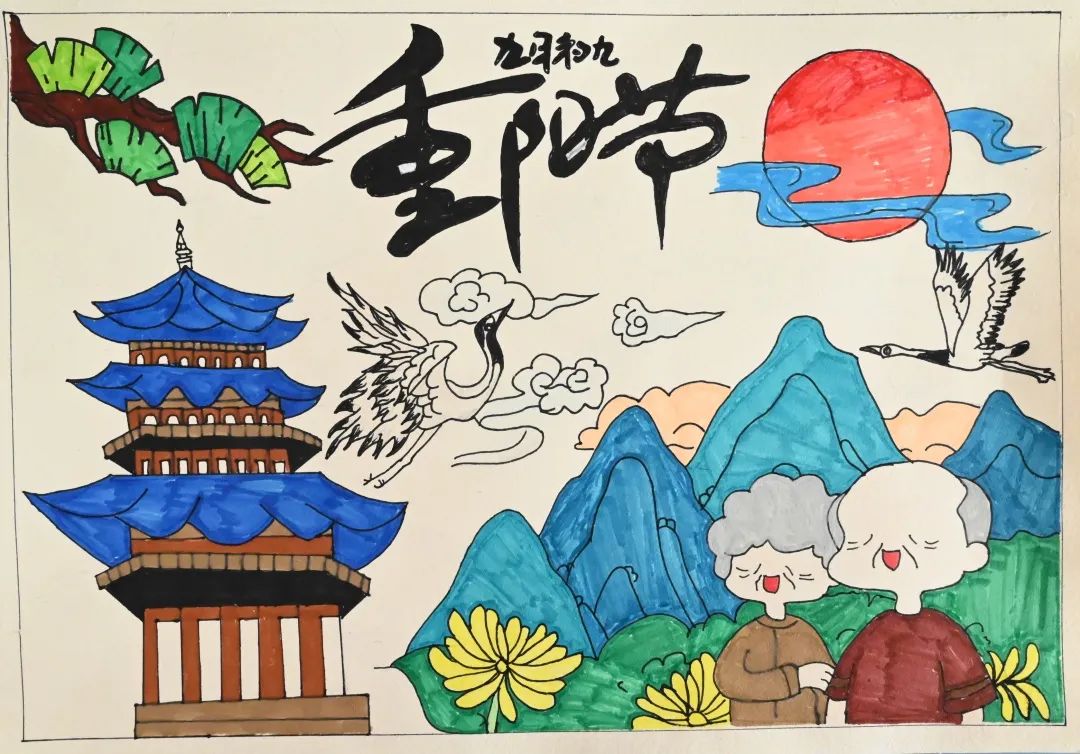 九月初九
重阳节